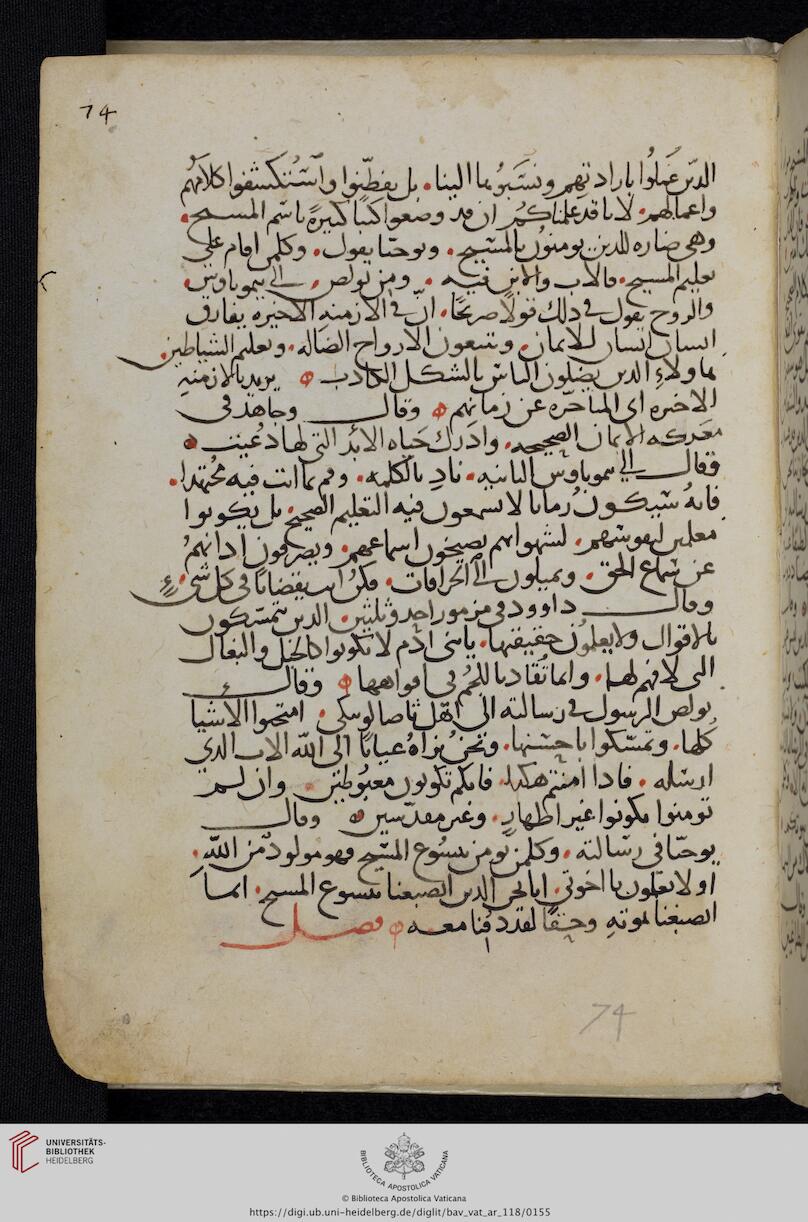 74
الدين عملوا بارادتهم ونسبوها الينا. بل يفطنوا واستنكشفوا كلامهم
واعمالهم. لاىا قد علمناكم ان قد وضعوا كتبا كثيرة باسم المسيح.
وهى ضاره للدين يومنون بالمسيح. ويوحنا يقول. وكلمن اقام على
تعليم المسيح. فالاب والابن فيه. ومن بولص. الى تيموتاوس.
والروح يقول فى ذلك قولا صريحا. ان فى الازمنه الاخيره يفارق
انسان انسان الايمان. ويتبعون الارواح الضاله. وتعليم الشياطين.
هاولاء الدين يضلون الناس بالشكل الكادب يريد بالازمنه
الاخيره اى المتاخره عن زمانهم وقال وجاهد فى
معركه الايمان الصحيحه. وادرك حياه الابد التى لها دعيت
وقال الى تيموتاوس الثانيه. ناد بالكلمه. وقم بما انت فيه مجتهدا.
فانه سيكون زمانا لا يسمعون فيه التعليم الصحيح. بل يكونوا
معلمين لنفوسهم. لشهواتهم يصيخون اسماعهم. ويصرفون ادانهم
عن سماع الحق. ويميلون الى الخرافات. فكن انت يقضانا فى كل شىء
وقال داوود فى مزمور احد وثلثين. الدين يتمسكون
بالاقوال ولا يعلمون حقيقتها. يا بنى ادم لا تكونوا كالخيل والبغال
التى لا فهم لها. وانما تقاد باللجم فى افواهها وقال
بولص الرسول فى رسالته الى اهل تاصالوسكى. امتحنوا الاشيا
كلها. وتمسكوا باحسنها. ونحن نراه عيانا الى الله الاب الدي
ارسله. فادا امنتم هكدا. فانكم تكونون مغبوطين. وان لم
تومنوا تكونوا غير اطهار. وغير مقدسين وقال
يوحنا فى رسالته. وكلمن يومن بيسوع المسيح فهو مولود من الله.
او لا تعلمون يا اخوتى. اننا نحن الدين انصبغنا بيسوع المسيح. انما
انصبغنا بموته وحقا لقد دفنا معه فصل
74
UNIVERSITÄTS-
BIBLIOTHEK
HEIDELBERG
BIBLIOTECA APOSTOLICA VATICANA
© Biblioteca Apostolica Vaticana
https://digi.ub.uni-heidelberg.de/diglit/bav_vat_ar_118/0155